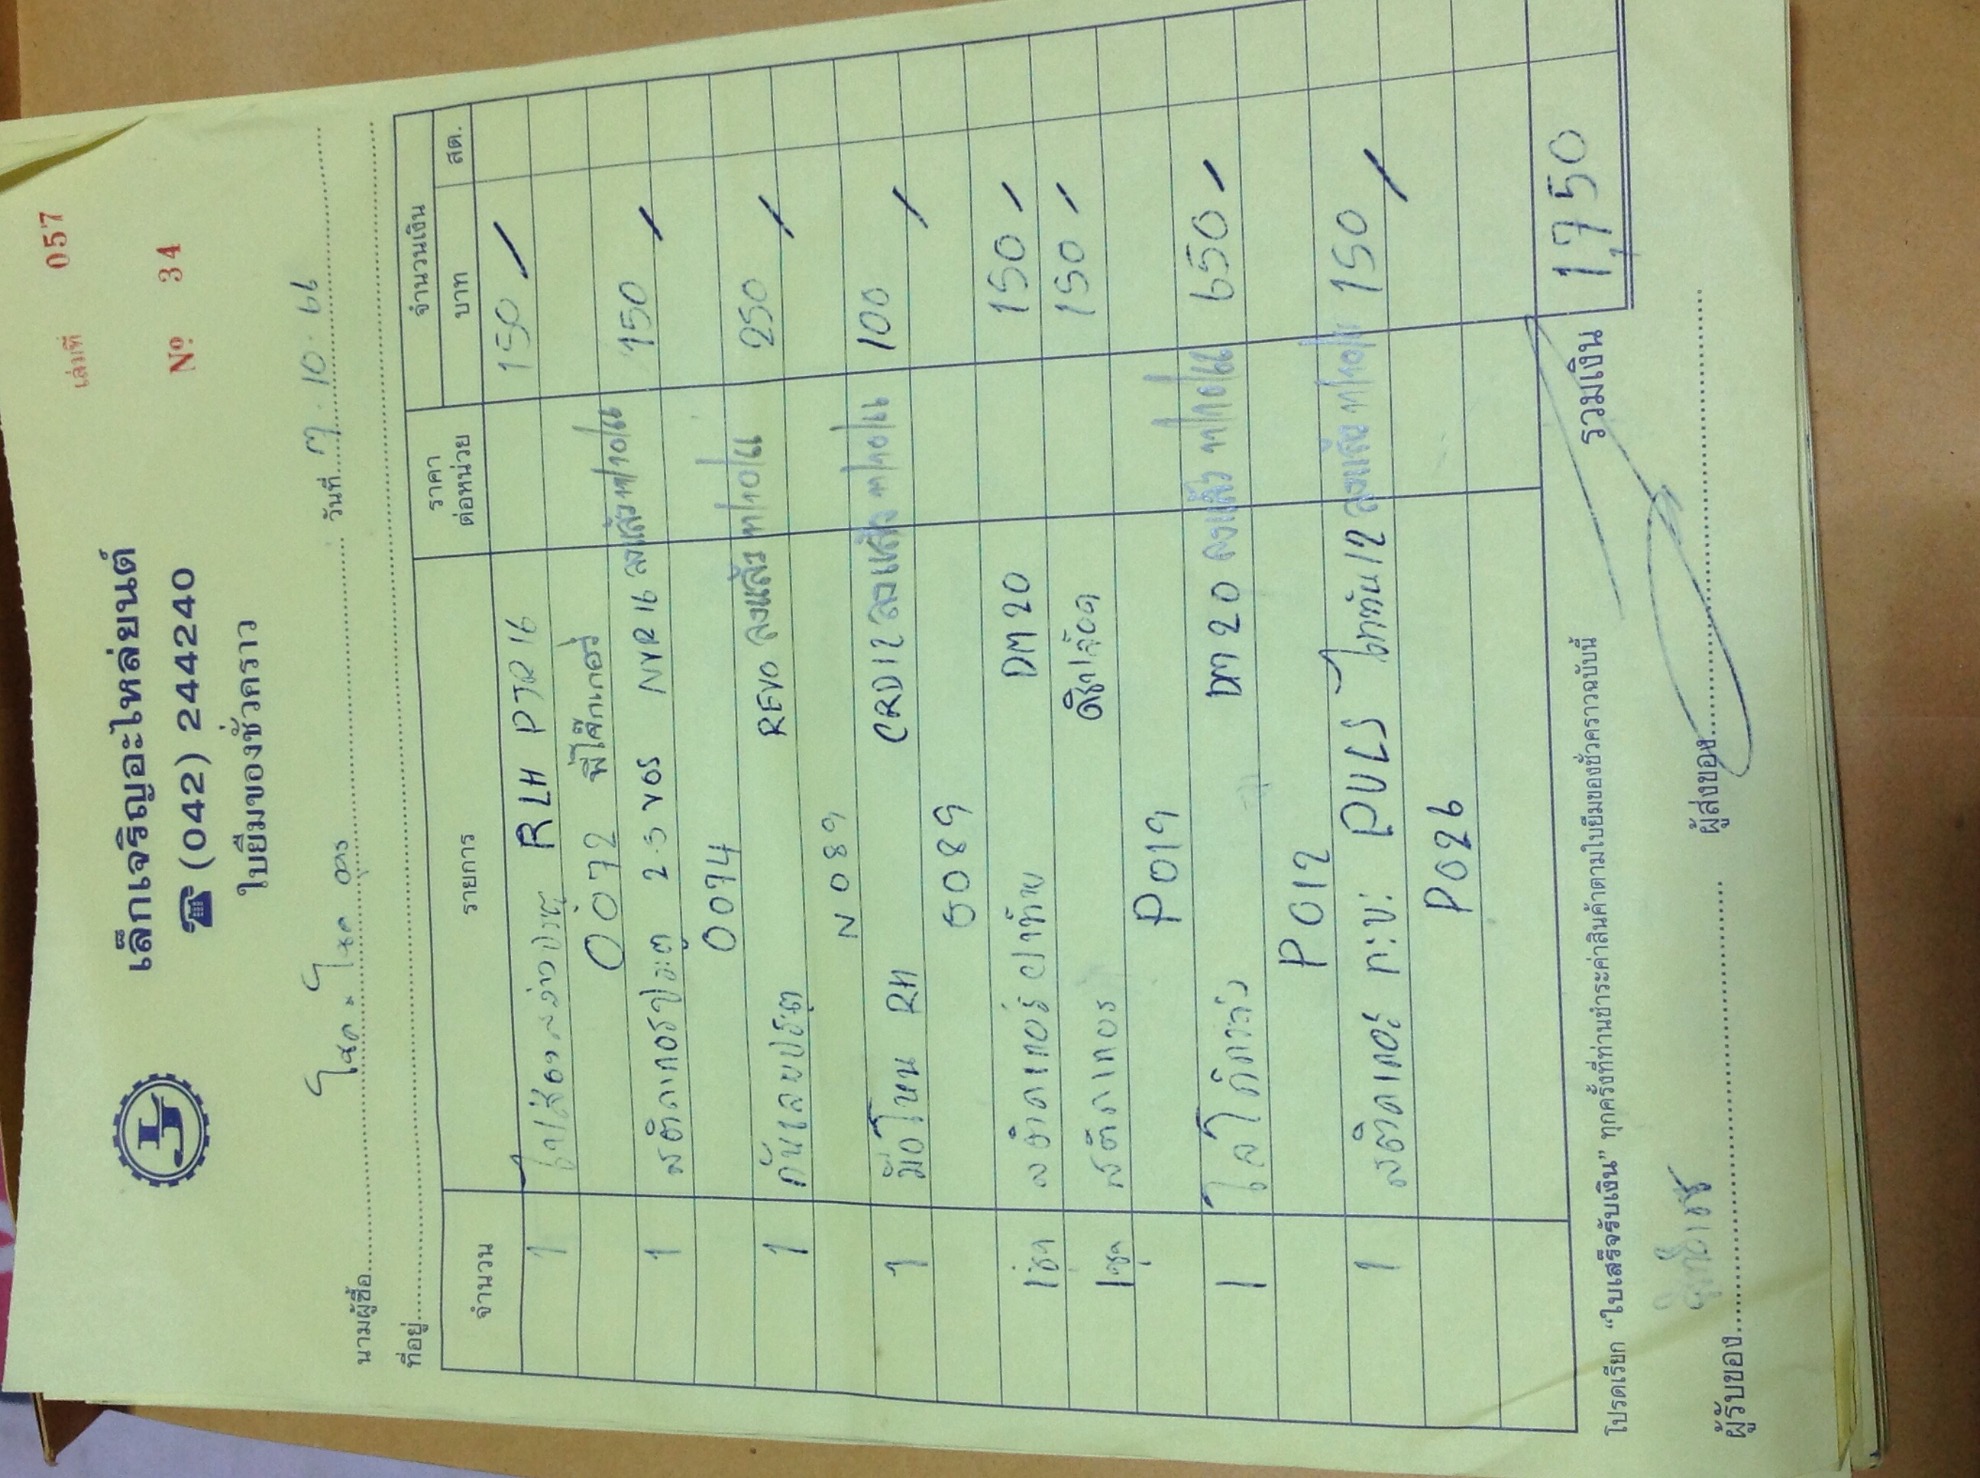 เล่มที่ 057
เล็กเจริญอะไหล่ยนต์
☎ (042) 244240 № 34
ใบยืมของชั่วคราว
นามผู้ซื้อ วันที่ 7.10.66
ที่อยู่
จำนวน รายการ ราคาต่อหน่วย จำนวนเงิน
บาท สต.
1 RLH PJR16 150
0072 พี่โจ๊กเกอร์
1 สติกเกอร์ประตู 2.5 VGS NVR16 ลงแล้ว 7/10/66 150
0074
1 กันเลยประตู REVO ลงแล้ว 7/10/66 250
N089
1 มือโหน RH CRD12 ลงแล้ว 7/10/66 100
G089
1ชุด สติกเกอร์ฝาท้าย DM20 150
1ชุด สติกเกอร์ 150
P019
1 โลโก้ DM20 ลงแล้ว 7/10/66 650
P012
1 สติกเกอร์ กะบะ ลงแล้ว 7/10/66 150
P026
รวมเงิน 1,750
โปรดเรียก “ใบเสร็จรับเงิน” ทุกครั้งที่ท่านชำระค่าสินค้าตามใบยืมของชั่วคราวฉบับนี้
ผู้รับของ ผู้ส่งของ